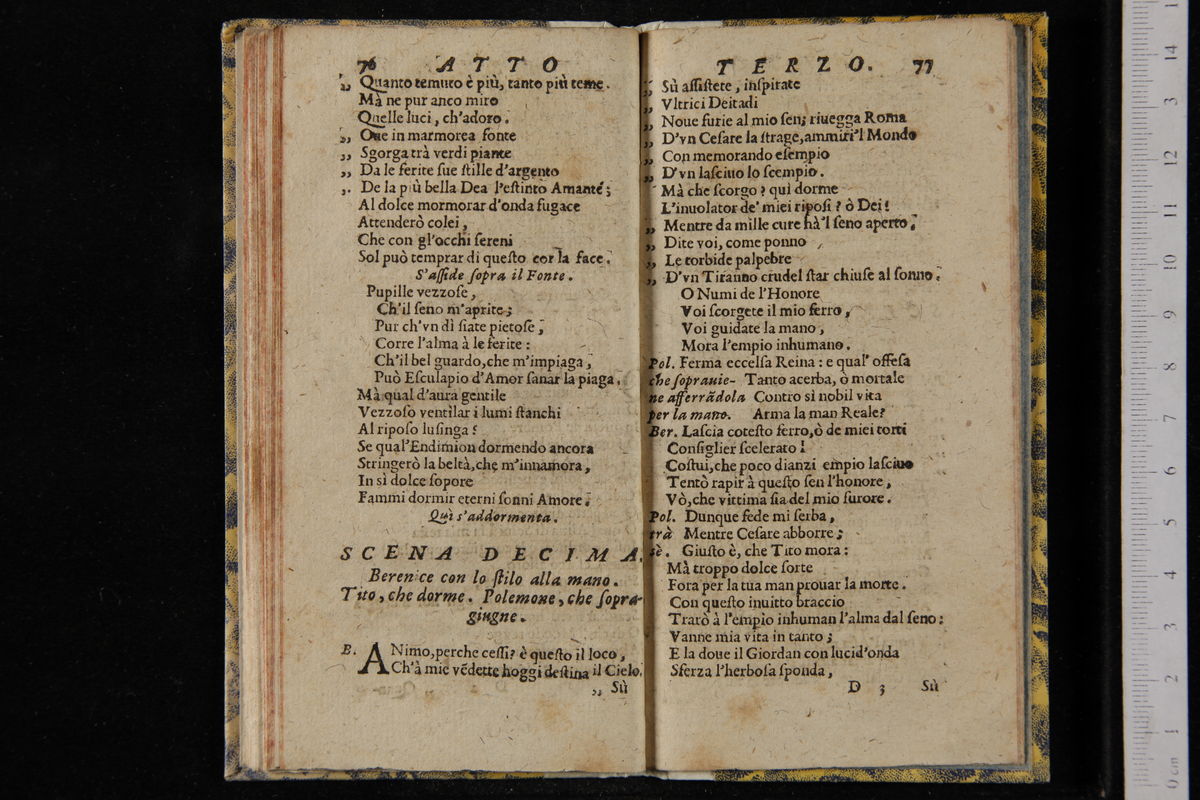 76 ATTO
„ Quanto temuto è più, tanto più teme.
Mà ne pur anco miro
Quelle luci, ch'adoro.
„ Oue in marmorea fonte
„ Sgorga trà verdi piante
„ Da le ferite sue stille d'argento
„ De la più bella Dea l'estinto Amante;
Al dolce mormorar d'onda fugace
Attenderò colei,
Che con gl'occhi sereni
Sol può temprar di questo cor la face.
S'asside sopra il Fonte.
Pupille vezzose,
Ch'il seno m'aprite;
Pur ch'vn dì siate pietose,
Corre l'alma à le ferite:
Ch'il bel guardo, che m'impiaga,
Può Esculapio d'Amor sanar la piaga.
Mà qual d'aura gentile
Vezzoso ventilar i lumi stanchi
Al riposo lusinga?
Se qual'Endimion dormendo ancora
Stringerò la beltà, che m'innamora,
In sì dolce sopore
Fammi dormir eterni sonni Amore.
Quì s'addormenta.
SCENA DECIMA.
Berenice con lo stilo alla mano.
Tito, che dorme. Polemone, che sopra-
giugne.
B. ANimo, perche cessi? è questo il loco,
Ch'à mie vẽdette hoggi destina il Cielo.
„ Sù
TERZO. 77
„ Sù assistete, inspirate
„ Vltrici Deitadi
„ Noue furie al mio sen; riuegga Roma
„ D'vn Cesare la strage, ammiri'l Mondo
„ Con memorando esempio
„ D'vn lasciuo lo scempio.
Mà che scorgo? quì dorme
L'inuolator de' miei riposi? ò Dei!
„ Mentre da mille cure hà'l seno aperto,
„ Dite voi, come ponno
„ Le torbide palpebre
„ D'vn Tiranno crudel star chiuse al sonno.
O Numi de l'Honore
Voi scorgete il mio ferro,
Voi guidate la mano,
Mora l'empio inhumano.
Pol. Ferma eccelsa Reina: e qual' offesa
che soprauie- Tanto acerba, ò mortale
ne afferrãdola Contro sì nobil vita
per la mano. Arma la man Reale?
Ber. Lascia cotesto ferro, ò de miei torti
Consiglier scelerato!
Costui, che poco dianzi empio lasciuo
Tentò rapir à questo sen l'honore,
Vò, che vittima sia del mio furore.
Pol. Dunque fede mi serba,
trà Mentre Cesare abborre;
sè. Giusto è, che Tito mora:
Mà troppo dolce sorte
Fora per la tua man prouar la morte.
Con questo inuitto braccio
Trarò à l'empio inhuman l'alma dal seno:
Vanne mia vita in tanto;
E la doue il Giordan con lucid'onda
Sferza l'herbosa sponda,
D 3 Sù
0 cm 1 2 3 4 5 6 7 8 9 10 11 12 3 14